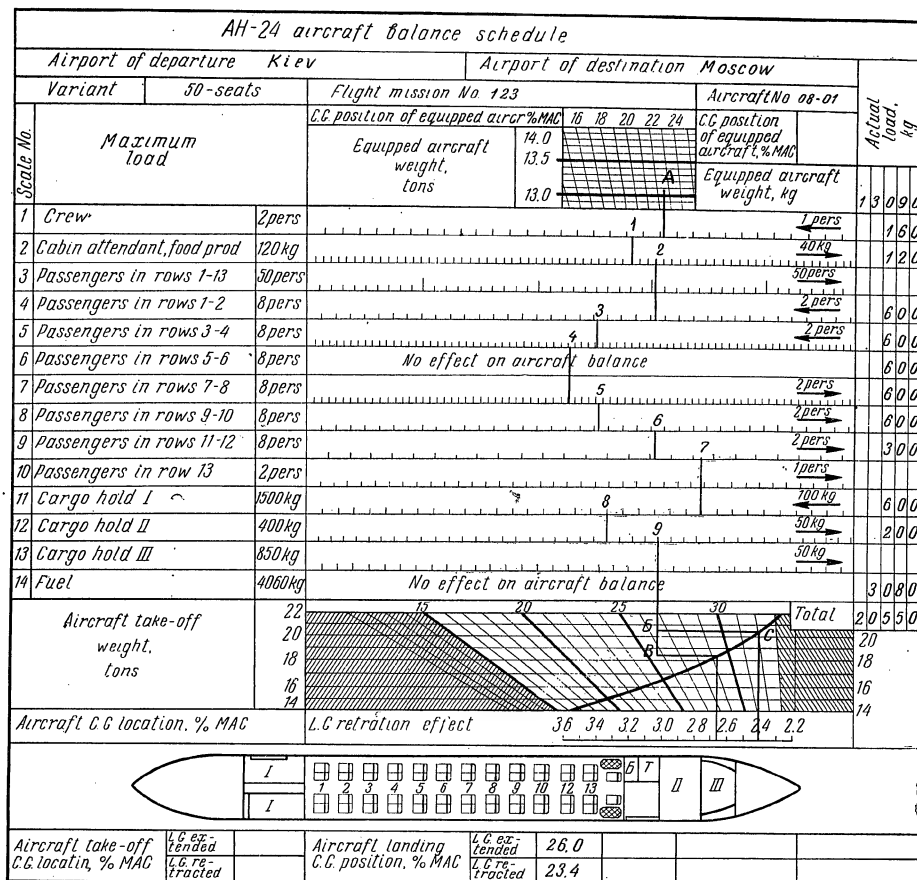 AH-24 aircraft balance schedule
Airport of departure Kiev Airport of destination Moscow
Variant 50-seats Flight mission No. 123 Aircraft No 08-01
Actual load, kg
Scale No.
Maximum load
C.G. position of equipped aircr %MAC 16 18 20 22 24
Equipped aircraft weight, tons
14.0
13.5
13.0
A
C.G. position of equipped aircraft, % MAC
Equipped aircraft weight, kg 13090
1 Crew 2pers 1 1 pers 160
2 Cabin attendant, food prod 120kg 2 40kg 120
3 Passengers in rows 1-13 50pers 50pers
4 Passengers in rows 1-2 8pers 3 2 pers 600
5 Passengers in rows 3-4 8pers 4 2 pers 600
6 Passengers in rows 5-6 8pers No effect on aircraft balance 600
7 Passengers in rows 7-8 8pers 5 2pers 600
8 Passengers in rows 9-10 8pers 6 2pers 600
9 Passengers in rows 11-12 8pers 7 2 pers 300
10 Passengers in row 13 2pers 1pers
11 Cargo hold I 1500kg 8 100 kg 600
12 Cargo hold II 400kg 9 50kg 200
13 Cargo hold III 850kg 50 kg
14 Fuel 4060kg No effect on aircraft balance 3080
Aircraft take-off weight, tons
22 15 20 25 30 Total 20550
20 Б С 20
18 В 18
16 16
14 14
Aircraft C.G location, % MAC L.G retration effect 3.6 3.4 3.2 3.0 2.8 2.6 2.4 2.2
I Б Т II III
1 2 3 4 5 6 7 8 9 10 12 13
I
Aircraft take-off C.G. locatin, % MAC L.G. ex-tended Aircraft landing C.G. position, % MAC L.G. ex-tended 26.0
L.G. re-tracted L.G. re-tracted 23.4